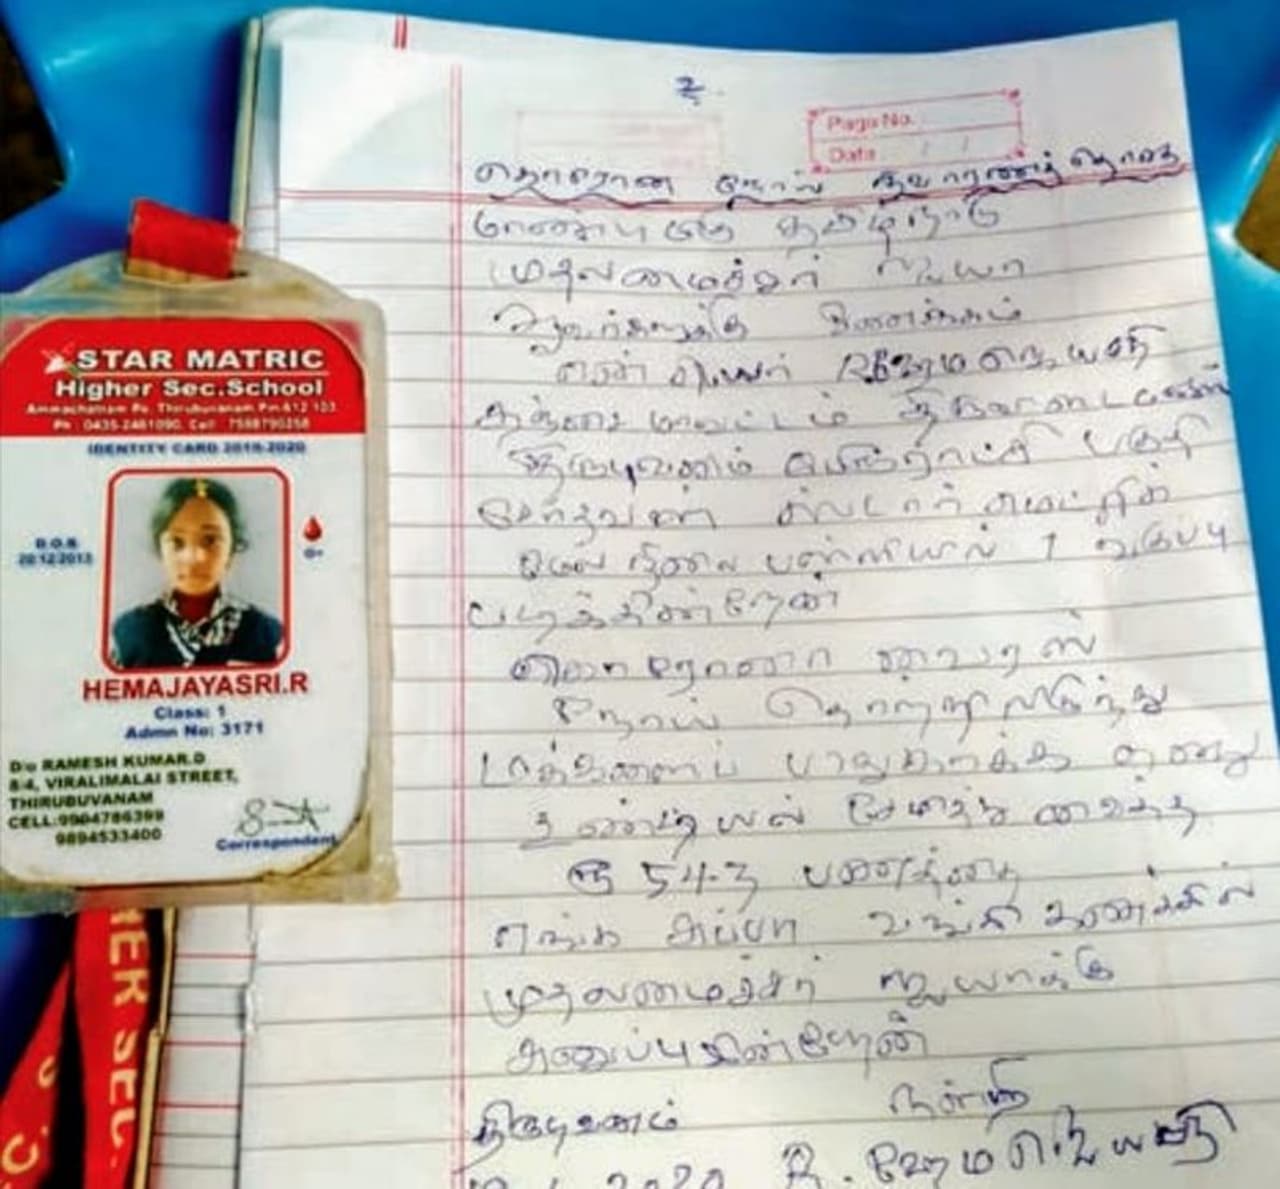 STAR MATRIC
Higher Sec.School
Ammachatram Po. Thirubuvanam Pm 612 103
IDENTITY CARD 2019-2020
D.O.B
20/12/2013
O+
HEMAJAYASRI.R
Class: 1
Admn No: 3171
D/o RAMESH KUMAR.D
VIRALIMALAI STREET,
THIRUBUVANAM
9894533400
Correspondent
உ
Page No.
Date
கொரோனா நோய் நிவாரணத் தொகை
மாண்புமிகு தமிழ்நாடு
முதலமைச்சர் ஐயா
அவர்களுக்கு வணக்கம்
என் பெயர் R ஹேமஜெயஸ்ரீ
தஞ்சை மாவட்டம்
திருபுவனம் பேரூராட்சி பகுதி
ஸ்டார் மெட்ரிக்
மேல் நிலை பள்ளியில் 1 வகுப்பு
படிக்கின்றேன்
கொரோனா வைரஸ்
நோய் தொற்றிலிருந்து
மக்களைப் பாதுகாக்க எனது
உண்டியல் சேமித்து வைத்த
ரூ 543 பணத்தை
எங்க அப்பா வங்கி கணக்கில்
முதலமைச்சர் ஐயாக்கு
அனுப்புகின்றேன்
நன்றி
திருபுவனம்
2020 R. ஹேமஜெயஸ்ரீ